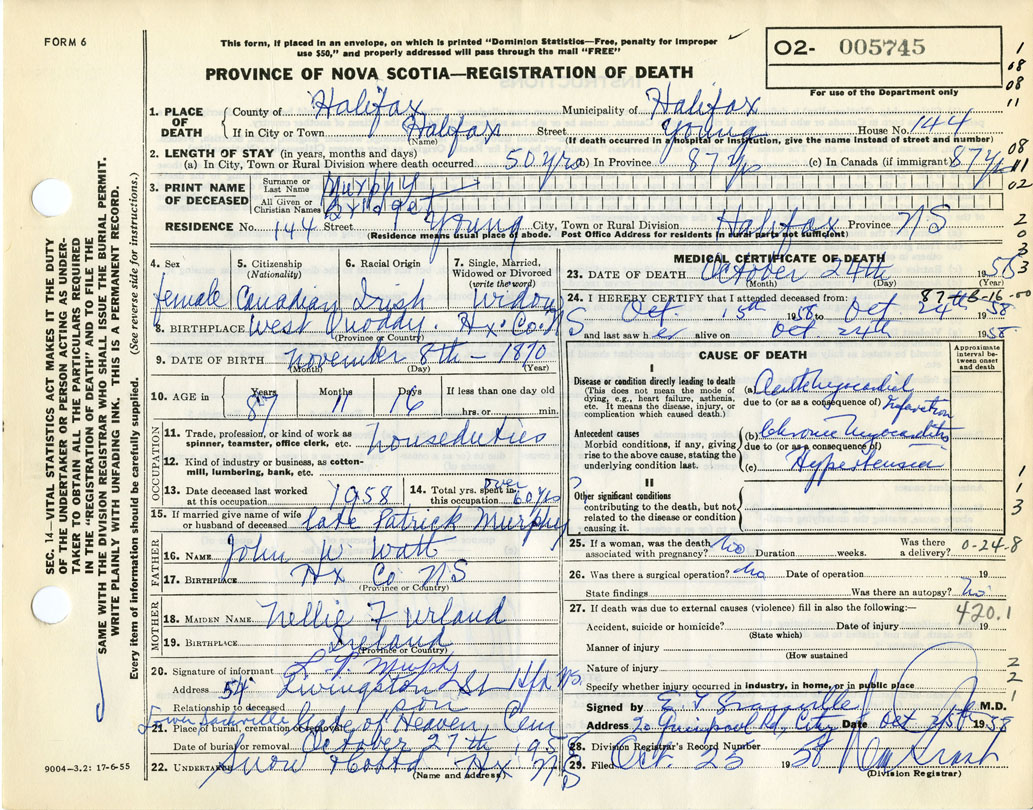 FORM 6
This form, if placed in an envelope, on which is printed "Dominion Statistics—Free, penalty for improper
use $50," and properly addressed will pass through the mail "FREE"
O2- 005745
For use of the Department only
PROVINCE OF NOVA SCOTIA—REGISTRATION OF DEATH
1
08
08
11
08
11
02
2
0
3
3
1. PLACE OF DEATH { County of Halifax Municipality of Halifax
If in City or Town Halifax Street Young House No. 144
(Name) (If death occurred in a hospital or institution, give the name instead of street and number)
2. LENGTH OF STAY (in years, months and days)
(a) In City, Town or Rural Division where death occurred 50 yrs (b) In Province 87 yrs (c) In Canada (if immigrant) 87 yrs
3. PRINT NAME OF DECEASED { Surname or Last Name Murphy
All Given or Christian Names Bridget
RESIDENCE No. 144 Street Young City, Town or Rural Division Halifax Province NS
(Residence means usual place of abode. Post Office Address for residents in rural parts not sufficient)
4. Sex 5. Citizenship (Nationality) 6. Racial Origin 7. Single, Married, Widowed or Divorced (write the word)
female Canadian Irish Widow
8. BIRTHPLACE West Quoddy. Hx. Co. N S
(Province or Country)
9. DATE OF BIRTH November 8th - 1870
(Month) (Day) (Year)
10. AGE in Years Months Days If less than one day old
87 11 16 hrs. or min.
OCCUPATION
11. Trade, profession, or kind of work as spinner, teamster, office clerk, etc. houseduties
12. Kind of industry or business, as cotton-mill, lumbering, bank, etc.
13. Date deceased last worked at this occupation 1958 14. Total yrs. spent in this occupation over 60 yrs
15. If married give name of wife or husband of deceased late Patrick Murphy
FATHER
16. NAME John W Watt
17. BIRTHPLACE Hx Co NS
(Province or Country)
MOTHER
18. MAIDEN NAME Nellie Furland
19. BIRTHPLACE Ireland
(Province or Country)
20. Signature of informant L. P. Murphy
Address 54 Livingston St Hfx NS
Relationship to deceased son
Lower Sackville
21. Place of burial, cremation or removal Gate of Heaven Cem
Date of burial or removal October 27th 1958
22. UNDERTAKER Snow Hx NS
(Name and Address)
MEDICAL CERTIFICATE OF DEATH
23. DATE OF DEATH October 24th 1958
(Month) (Day) (Year)
24. I HEREBY CERTIFY that I attended deceased from: 87-B-16-00
Oct. 15th 1958 to Oct. 24th 1958
and last saw her alive on Oct 24th 1958
CAUSE OF DEATH
Approximate interval between onset and death
I
Disease or condition directly leading to death (a) Acute Myocardial Infarction
(This does not mean the mode of dying, e.g., heart failure, asthenia, etc. It means the disease, injury, or complication which caused death.)
due to (or as a consequence of)
Antecedent causes (b) Chronic Myocarditis
Morbid conditions, if any, giving rise to the above cause, stating the underlying condition last.
due to (or as a consequence of)
(c) Hypertension
II
Other significant conditions
contributing to the death, but not related to the disease or condition causing it.
1
1
3
25. If a woman, was the death associated with pregnancy? No Duration weeks. Was there a delivery? 0-24-8
26. Was there a surgical operation? No Date of operation 19
State findings Was there an autopsy? No
27. If death was due to external causes (violence) fill in also the following:— 420.1
Accident, suicide or homicide? Date of injury 19
(State which)
Manner of injury
(How sustained)
Nature of injury
2
2
1
Specify whether injury occurred in industry, in home, or in public place
Signed by E. F. Granville M.D.
Address 20 Quinpool Rd, City Date Oct 25th 1958
28. Division Registrar's Record Number
29. Filed Oct. 25 1958
(Division Registrar)
SEC. 14—VITAL STATISTICS ACT MAKES IT THE DUTY
OF THE UNDERTAKER OR PERSON ACTING AS UNDER-
TAKER TO OBTAIN ALL THE PARTICULARS REQUIRED
IN THE "REGISTRATION OF DEATH" AND TO FILE THE
SAME WITH THE DIVISION REGISTRAR WHO SHALL ISSUE THE BURIAL PERMIT.
WRITE PLAINLY WITH UNFADING INK. THIS IS A PERMANENT RECORD.
Every item of information should be carefully supplied. (See reverse side for instructions.)
9004—3.2: 17-6-55